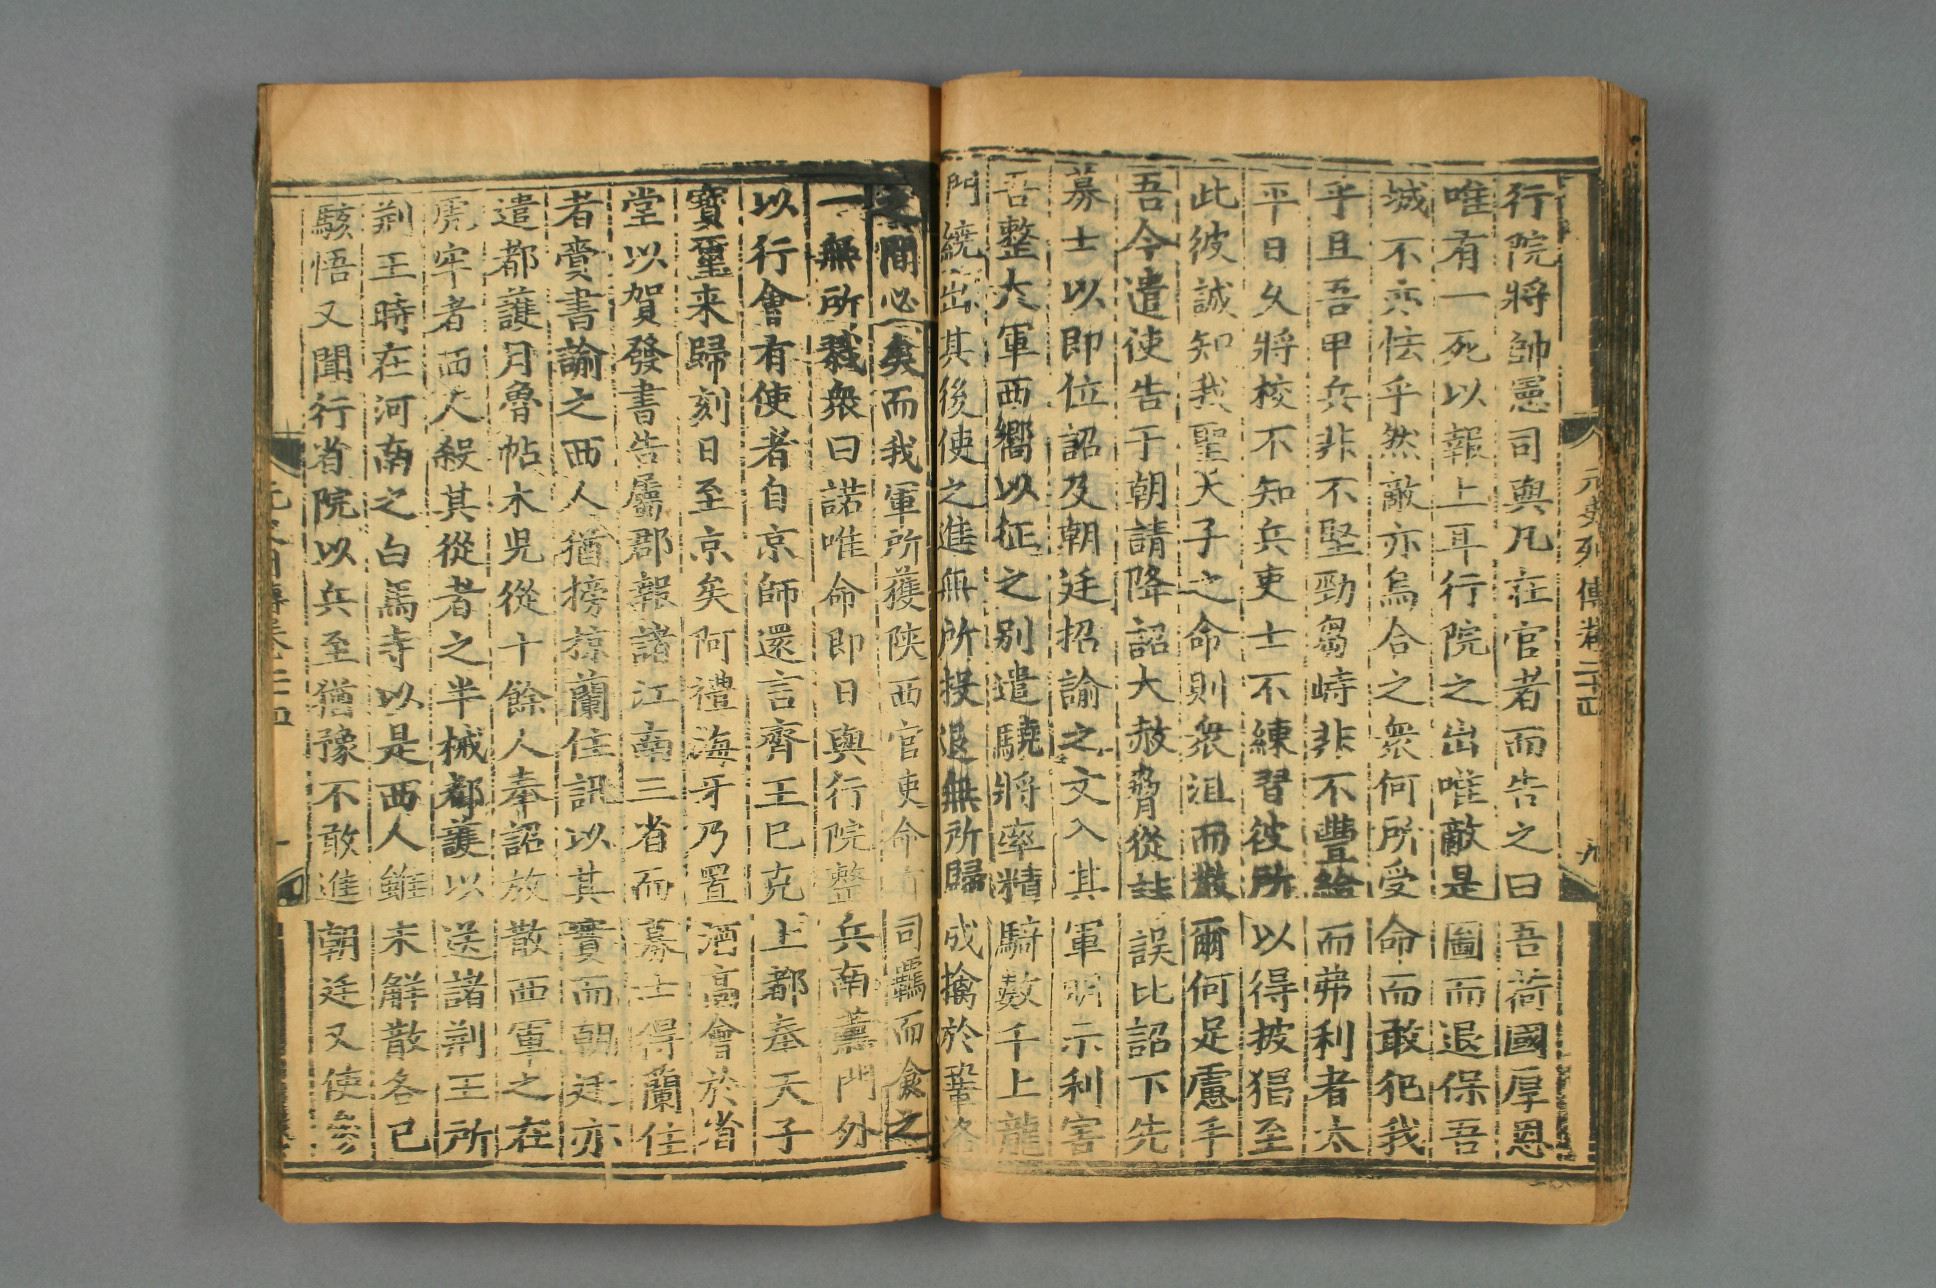 行院將帥憲司與凡在官者而告之曰吾荷國厚恩
唯有一死以報上耳行院之出唯敵是圖而退保吾
城不亦怯乎然敵亦烏合之衆何所受命而敢犯我
乎且吾甲兵非不堅勁芻峙非不豐給而弗利者太
平日久將校不知兵吏士不練習彼所以得披猖至
此彼誠知我聖天子之命則衆沮而散爾何足慮乎
吾今遣使告于朝請降詔大赦脅從詿誤比詔下先
募士以即位詔及朝廷招諭之文入其軍明示利害
吾整大軍西嚮以征之别遣驍將率精騎數千上龍
門繞出其後使之進無所投退無所歸成擒於鞏洛
之間必矣而我軍所獲陝西官吏命有司羈而食之
一無所戮衆曰諾唯命即日與行院整兵南薰門外
以行會有使者自京師還言齊王已克上都奉天子
寶璽来歸刻日至京矣阿禮海牙乃置酒高會於省
堂以賀發書告屬郡報諸江南三省而募士得蘭住
者賫書諭之西人猶搒掠蘭住訊以其實而朝廷亦
遣都護月魯帖木兒從十餘人奉詔放散西軍之在
虎牢者西人殺其從者之半械都護以送諸荆王所
荆王時在河南之白馬寺以是西人雖未解散各已
駭悟又聞行省院以兵至猶豫不敢進朝廷又使參
元史列傳卷二十四
九